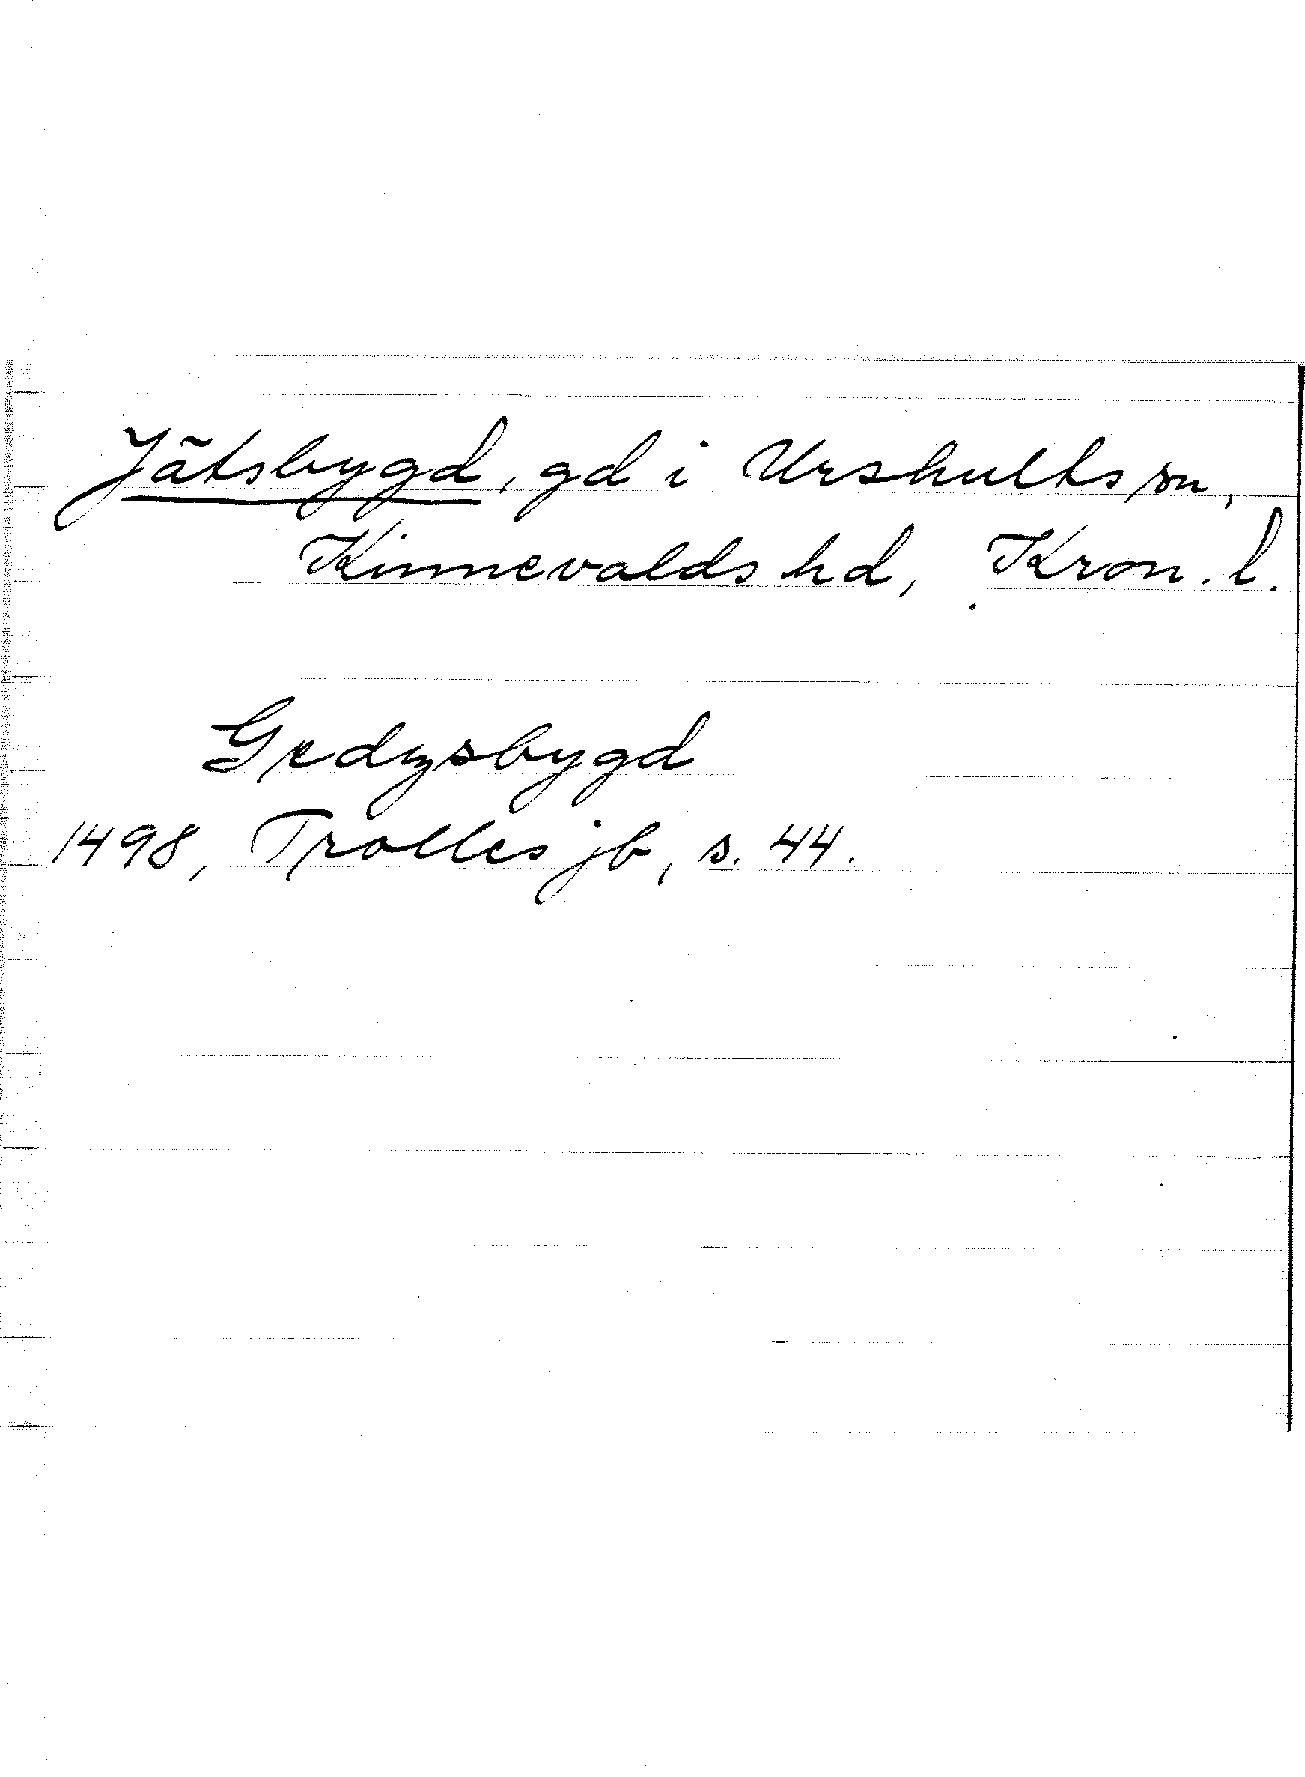 Jätsbygd, gd i Urshults sn,
Kinnevalds hd, Kron. l.
Gedzsbygd
1498, Trolles jb, s. 44.